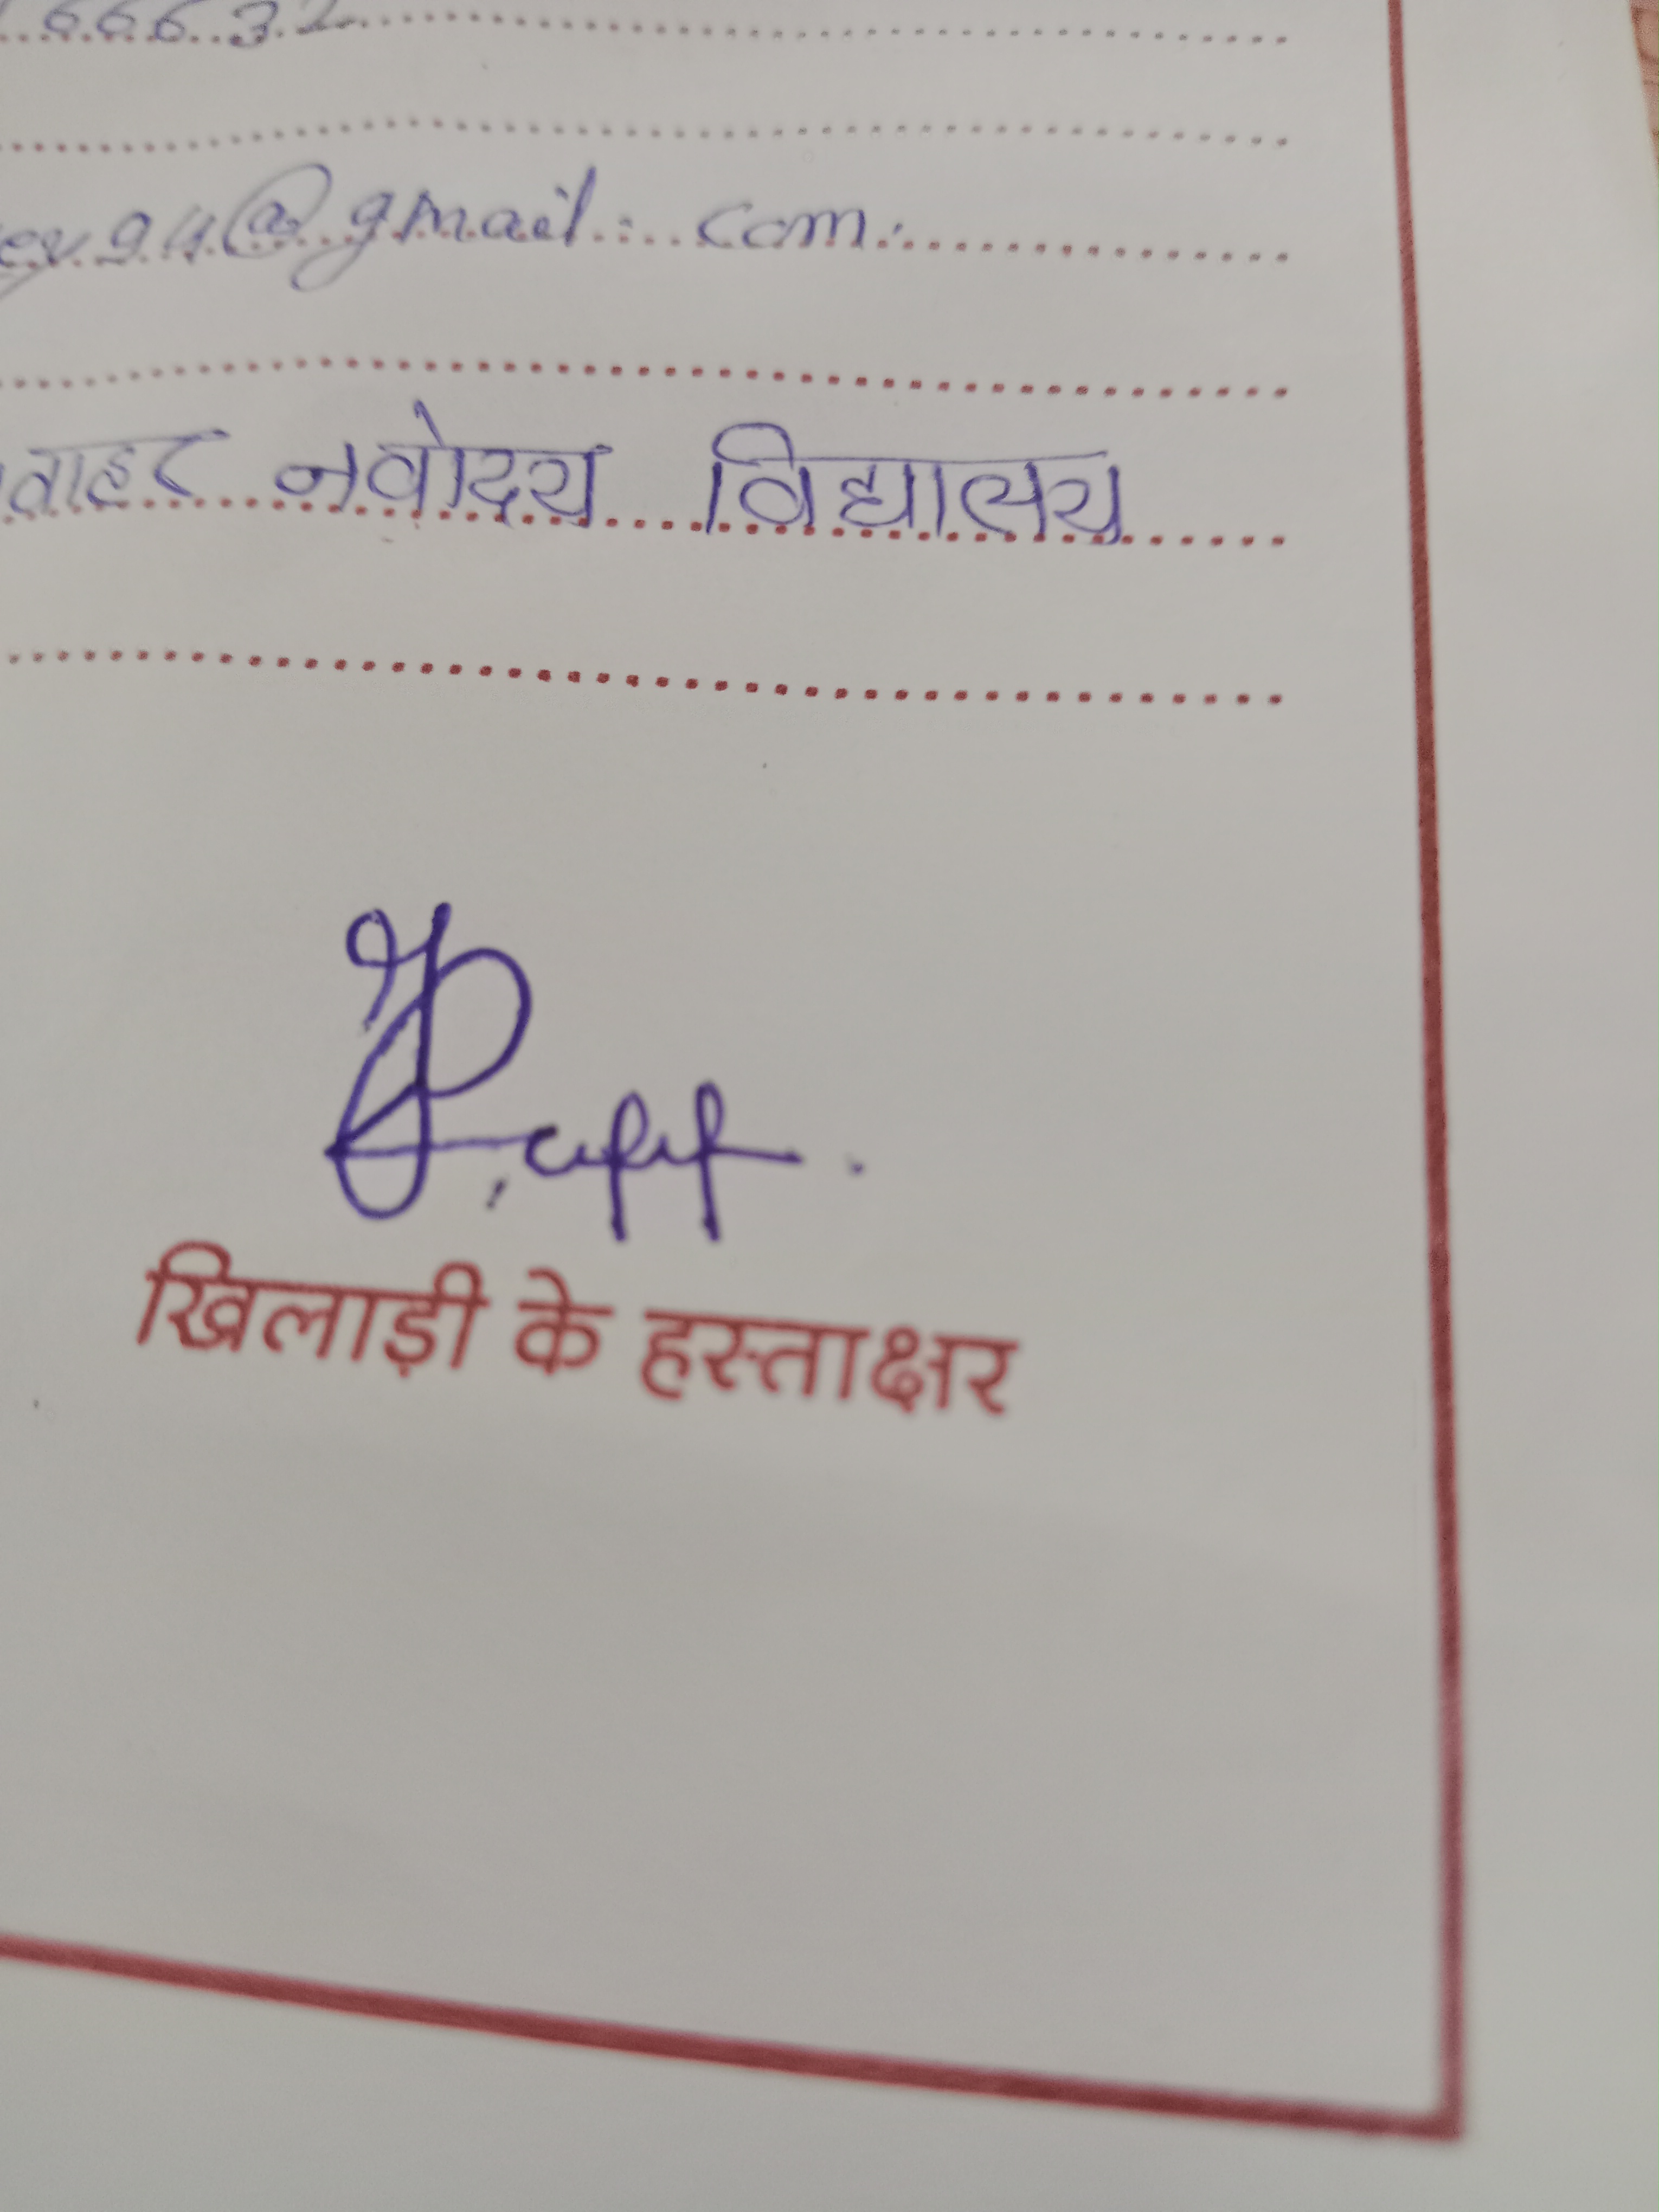 66632
ey94@gmail.com.
वाहर नवोदय विद्यालय
खिलाड़ी के हस्ताक्षर